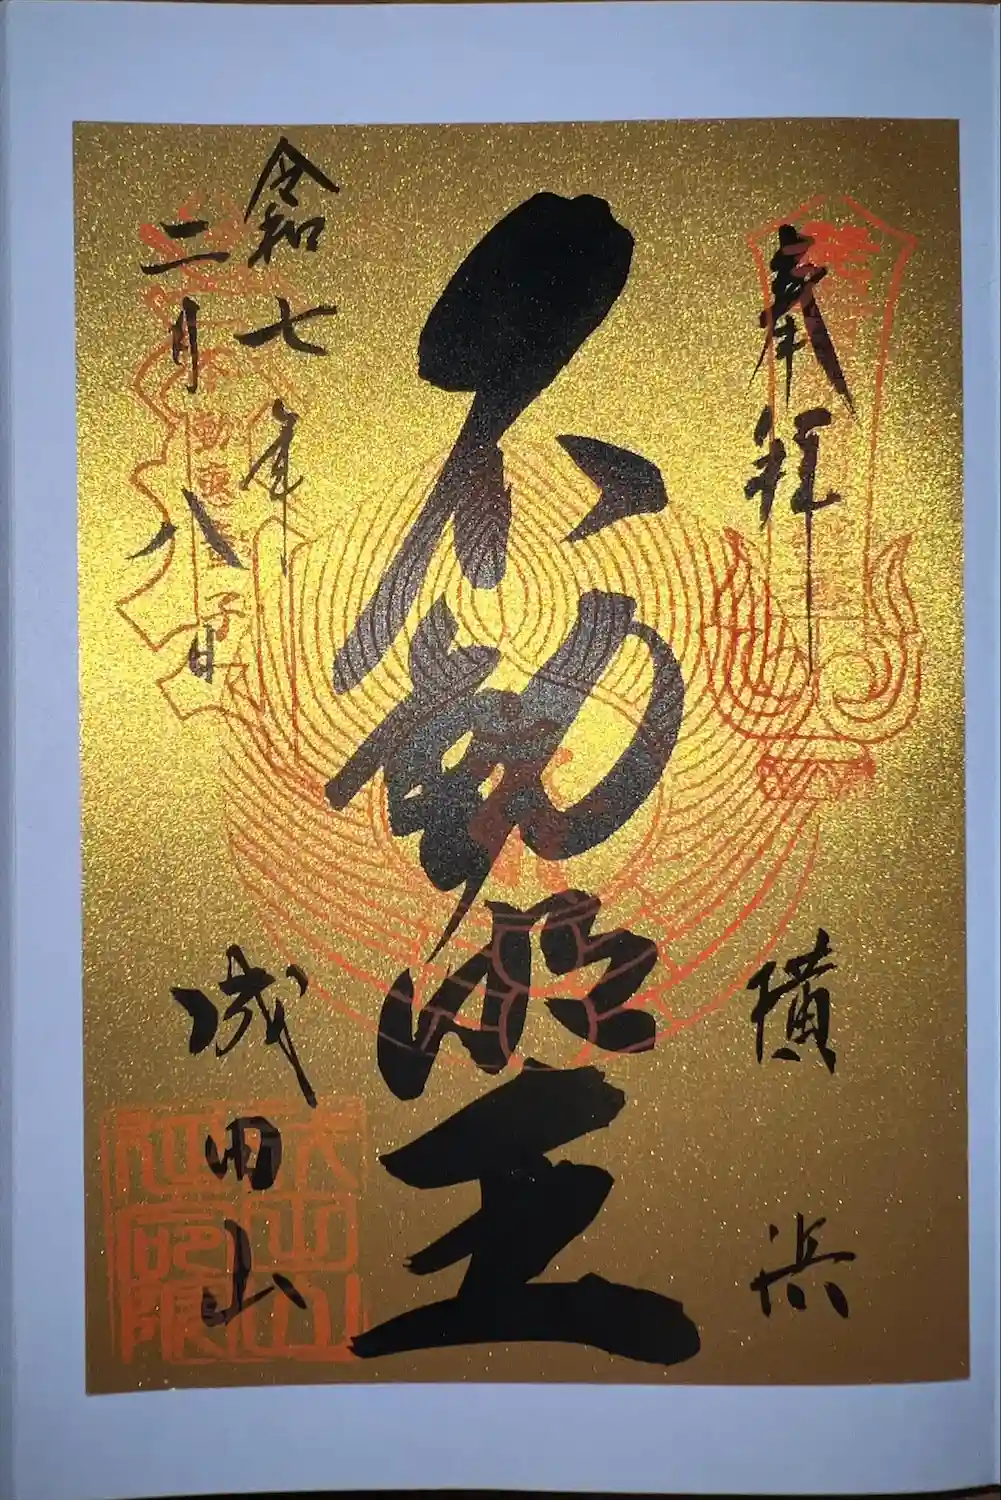 奉拝
横浜
不動明王
令和七年
二月八日
成田山